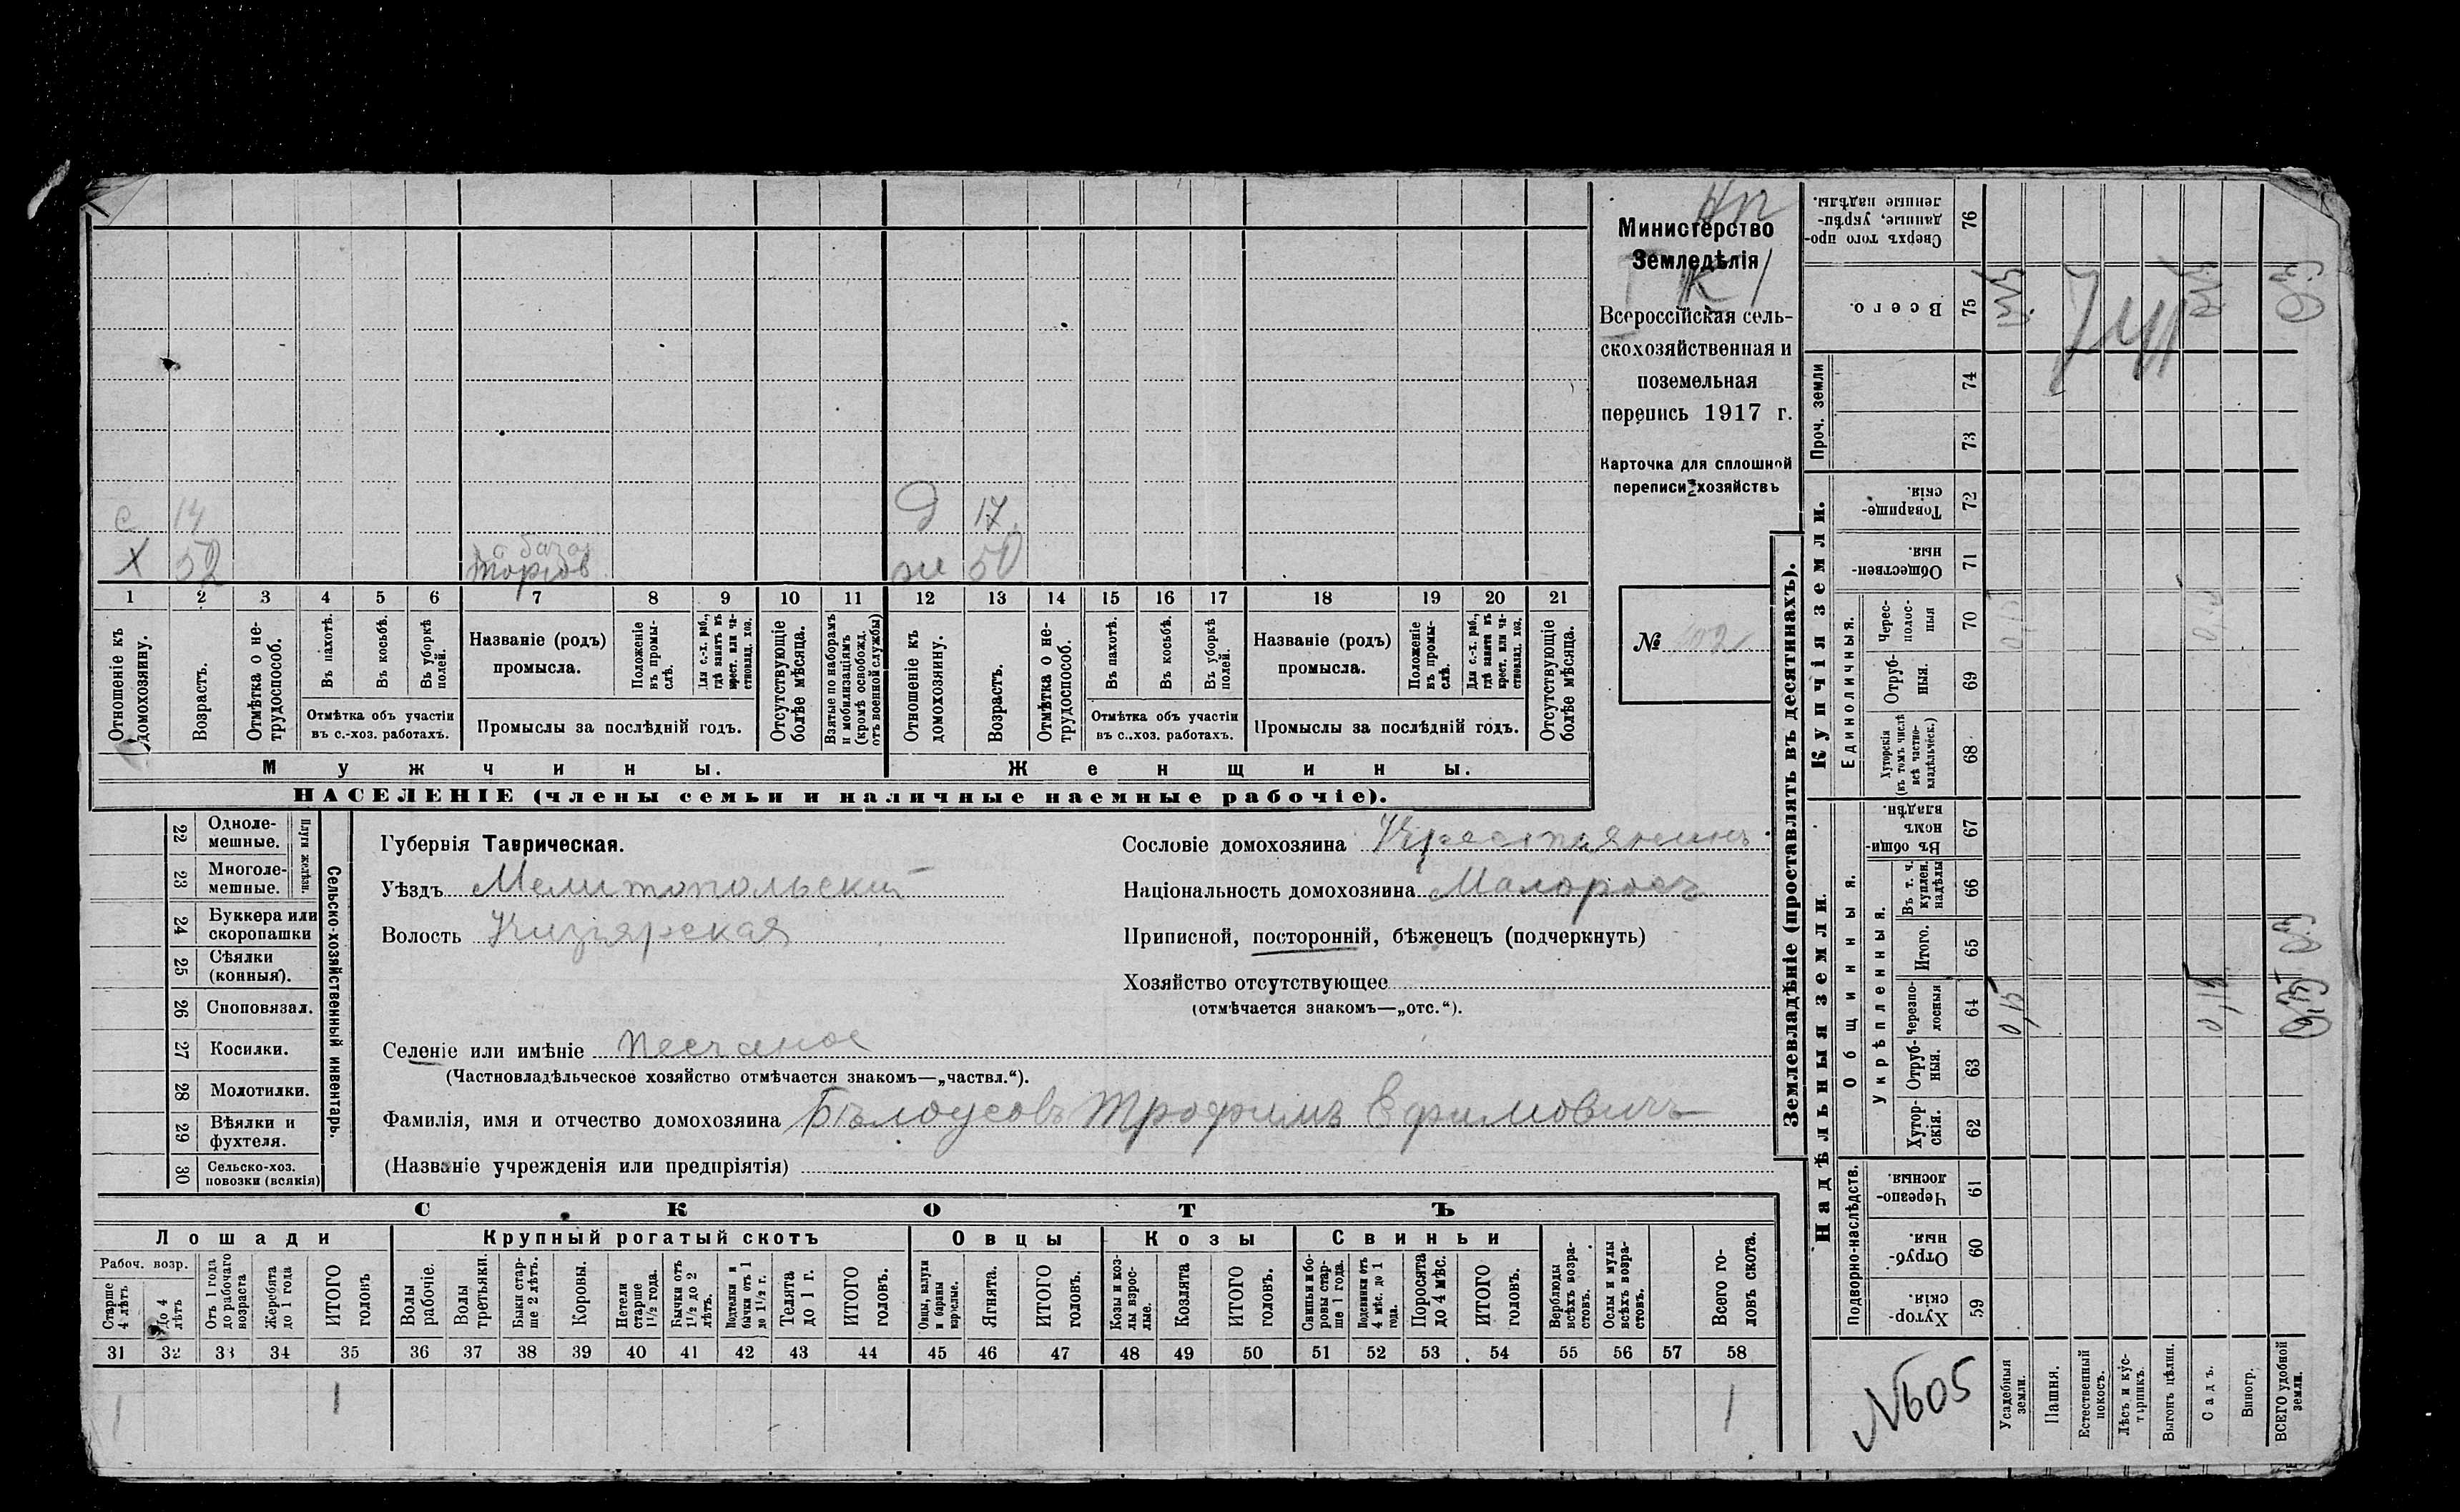 Министерство
Земледѣлія
Всероссійская сель-
скохозяйственная и
поземельная
перепись 1917 г.
Карточка для сплошной
переписи хозяйствъ
№ 102
с 14
Д 17
Х 52
торгов
ж 50
1 2 3 4 5 6 7 8 9 10 11 12 13 14 15 16 17 18 19 20 21
Отношеніе къ домохозяину.
Возрастъ.
Отмѣтка о не-трудоспособ.
Въ пахотѣ.
Въ косьбѣ.
Въ уборкѣ полей.
Отмѣтка объ участіи въ с.-хоз. работахъ.
Названіе (родъ) промысла.
Положеніе въ промы-слѣ.
Для с.-х. раб., гдѣ занятъ въ крест. или ча-стновлад. хоз.
Промыслы за послѣдній годъ.
Отсутствующіе болѣе мѣсяца.
Взятые по наборамъ и мобилизаціямъ (кромѣ освобожд. отъ военной службы)
Отношеніе къ домохозяину.
Возрастъ.
Отмѣтка о не-трудоспособ.
Въ пахотѣ.
Въ косьбѣ.
Въ уборкѣ полей.
Отмѣтка объ участіи въ с..хоз. работахъ.
Названіе (родъ) промысла.
Положеніе въ промы-слѣ.
Для с.-х. раб., гдѣ занятъ въ крест. или ча-стновлад. хоз.
Промыслы за послѣдній годъ.
Отсутствующіе болѣе мѣсяца.
Мужчины.
Женщины.
НАСЕЛЕНІЕ (члены семьи и наличные наемные рабочіе).
22 Одноле-мешные.
23 Многоле-мешные.
Плуги желѣзн.
24 Буккера или скоропашки
25 Сѣялки (конныя).
26 Сноповязал.
27 Косилки.
28 Молотилки.
29 Вѣялки и фухтеля.
30 Сельско-хоз. повозки (всякія)
Сельско-хозяйственный инвентарь.
Губернія Таврическая.
Уѣздъ Мелитопольскій
Волость Кизіярская
Селеніе или имѣніе Песчаное
(Частновладѣльческое хозяйство отмѣчается знакомъ—„частвл.“).
Фамилія, имя и отчество домохозяина Бѣлоусовъ Трофимъ Ефимовичъ
(Названіе учрежденія или предпріятія)
Сословіе домохозяина Крестьянинъ
Національность домохозяина Малоросъ
Приписной, посторонній, бѣженецъ (подчеркнуть)
Хозяйство отсутствующее
(отмѣчается знакомъ—„отс.“).
СКОТЪ
Лошади
Крупный рогатый скотъ
Овцы
Козы
Свиньи
Рабоч. возр.
Старше 4 лѣтъ
До 4 лѣтъ
Отъ 1 года до рабочаго возраста
Жеребята до 1 года
ИТОГО головъ
Волы рабочіе.
Волы третьяки.
Быки стар-ше 2 лѣтъ.
Коровы.
Нетели старше 1½ года.
Бычки отъ 1½ до 2 лѣтъ.
Подтелки и бычки отъ 1 до 1½ г.
Телята до 1 г.
ИТОГО головъ.
Овцы, валухи и бараны взрослые.
Ягнята.
ИТОГО головъ.
Козы и коз-лы взрос-лые.
Козлята
ИТОГО головъ.
Свиньи и бо-ровы стар-ше 1 года.
Подсвинки отъ 4 мѣс. до 1 года.
Поросята до 4 мѣс.
ИТОГО головъ.
Верблюды всѣхъ возра-стовъ.
Ослы и мулы всѣхъ возра-стовъ.
Всего го-ловъ скота.
31 32 33 34 35 36 37 38 39 40 41 42 43 44 45 46 47 48 49 50 51 52 53 54 55 56 57 58
1 1 1
Землевладѣніе (проставлять въ десятинахъ).
Купчія земли.
Надѣльныя земли.
Сверхъ того про-данные, укрѣп-ленные надѣлы. 76
Всего. 75
Проч. земли 74 73
Товарище-скія. 72
Обществен-ныя. 71
Единоличныя.
Черес-полос-ныя 70
Отруб-ныя. 69
Хуторскія (въ томъ числѣ всѣ частно-владѣльческ.) 68
Общинныя.
Въ общин-номъ владѣн. 67
Укрѣпленныя.
Въ т. ч. куплен. надѣлы 66
Итого. 65
Черезпо-лосныя 64
Отруб-ныя. 63
Хутор-скія. 62
Подворно-наслѣдств.
Черезпо-лосныя 61
Отруб-ныя. 60
Хутор-скія. 59
0,15
0,15
№605
Усадебныя земли.
Пашня.
Естественный покосъ.
Лѣсъ и кус-тарникъ.
Выгонъ цѣлин.
Садъ.
Виногр.
ВСЕГО удобной земли.